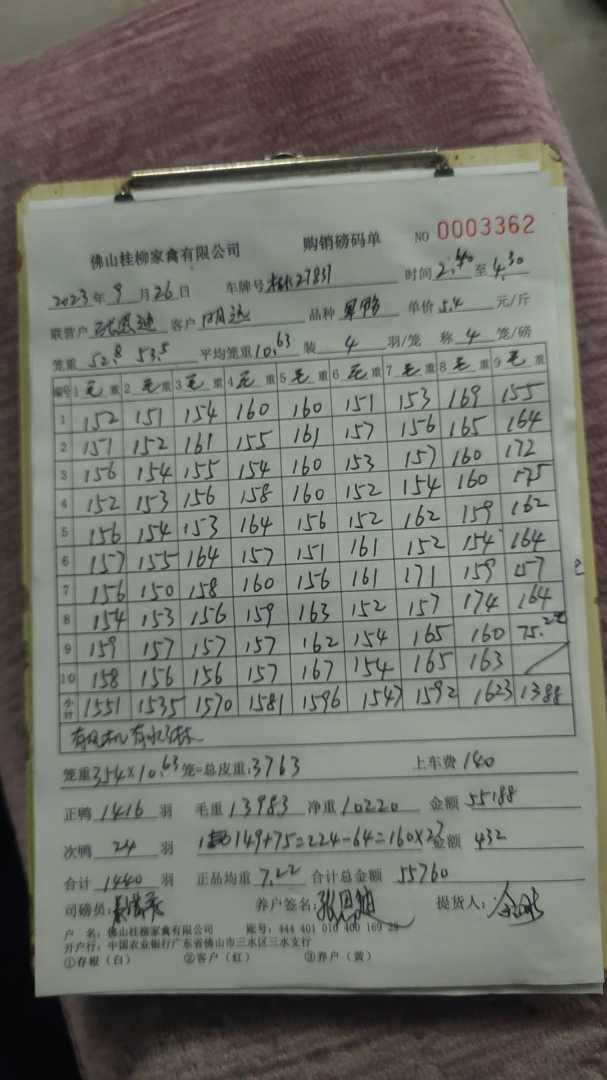 佛山桂柳家禽有限公司 购销磅码单 NO 0003362
2023年9月26日 车牌号27837 时间2:40至4:30
联营户 客户 明达 品种 单价5.4元/斤
笼重 52.8 53.5 平均笼重10.63 装 4 羽/笼 称 4 笼/磅
编号 1 毛重 2 毛重 3 毛重 4 毛重 5 毛重 6 毛重 7 毛重 8 毛重 9 毛重
1 152 151 154 160 160 151 153 169 155
2 151 152 161 155 161 157 156 165 164
3 156 154 155 154 160 153 157 160 172
4 152 153 156 158 160 152 154 160 175
5 156 154 153 164 156 152 162 159 162
6 157 155 164 157 151 161 152 154 164
7 156 150 158 160 156 161 171 159 157
8 154 153 156 159 163 152 157 174 164
9 159 157 157 157 162 154 165 160 75.2
10 158 156 156 157 167 154 165 163
小计 1551 1535 1570 1581 1596 1547 1592 1623 1388
有风机有水
笼重354×10.63笼=总皮重:3763 上车费 140
正鸭 1416 羽 毛重 13983 净重 10220 金额 55188
次鸭 24 羽 149+75=224-64=160×27 金额 432
合计 1440 羽 正品均重 7.22 合计总金额 55760
司磅员: 养户签名: 提货人:
户 名:佛山桂柳家禽有限公司 账号:444 401 010 400 169 29
开户行:中国农业银行广东省佛山市三水区三水支行
①存根(白) ②客户(红) ③养户(黄)